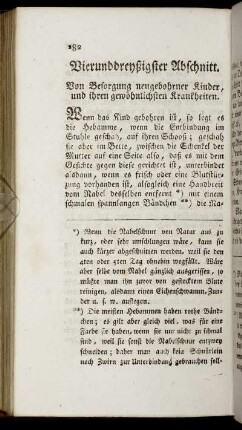 182
Vierunddreyßigster Abschnitt.
Von Besorgung neugebohrner Kinder,
und ihren gewöhnlichsten Krankheiten.
Wenn das Kind gebohren ist, so legt es
die Hebamme, wenn die Entbindung im
Stuhle geschah, auf ihren Schooß; geschah
sie aber im Bette, zwischen die Schenkel der
Mutter auf eine Seite also, daß es mit dem
Gesichte gegen diese gerichtet ist, unterbindet
alsdann, wenn es frisch oder eine Blutstür-
zung vorhanden ist, alsgleich eine Handbreit
vom Nabel desselben entfernt *) mit einem
schmalen spannlangen Bändchen **) die Na-
*) Wenn die Nabelschnur von Natur aus zu
kurz, oder sehr umschlungen wäre, kann sie
auch kürzer abgeschnitten werden, weil sie den
5ten oder 7ten Tag ohnehin wegfällt. Wäre
aber selbe vom Nabel gänzlich ausgerissen, so
müßte man ihn zuvor von gestocktem Blute
reinigen, alsdann einen Eichenschwamm, Zun-
der u. s. w. auflegen.
**) Die meisten Hebammen haben rothe Bänd-
chen; es gilt aber gleich viel, was für eine
Farbe sie haben, wenn sie nur nicht zu schmal
sind, weil sie sonst die Nabelschnur entzwey
schneiden; daher man auch kein Schnürlein
noch Zwirn zur Unterbindung gebrauchen soll-